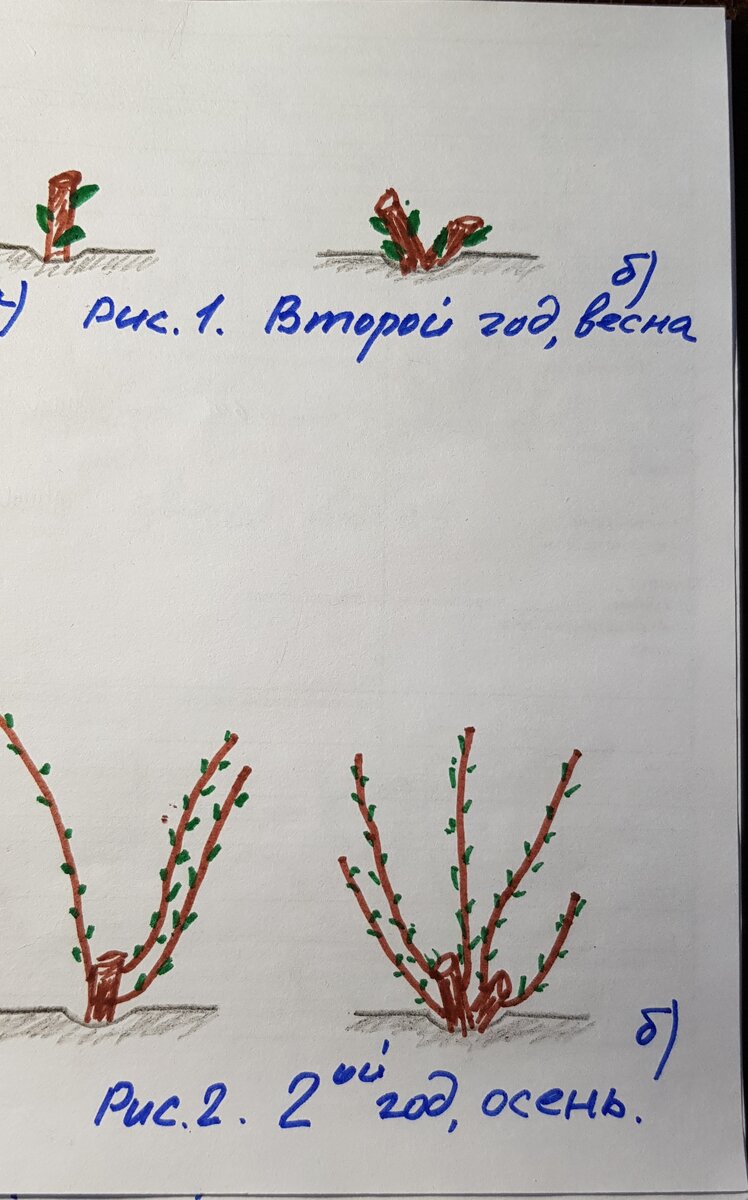 б)
Рис. 1. Второй год, весна
б)
Рис. 2. 2ой год, осень.